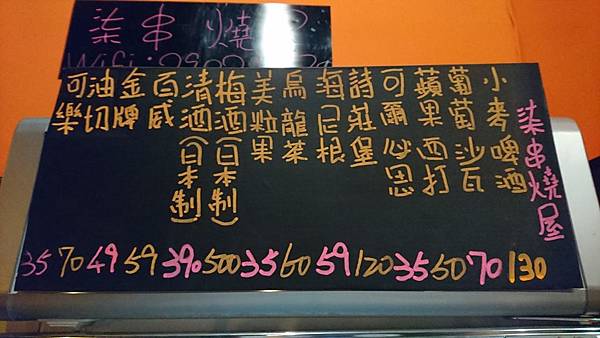 柒串燒
Wifi:
柒串燒屋
小麥啤酒 130
葡萄沙瓦 70
蘋果西打 50
可爾必思 35
詩莊堡 120
海尼根 59
烏龍茶 60
美粒果 35
梅酒(日本制) 500
清酒(日本制) 390
百威 59
金牌 49
油切 70
可樂 35